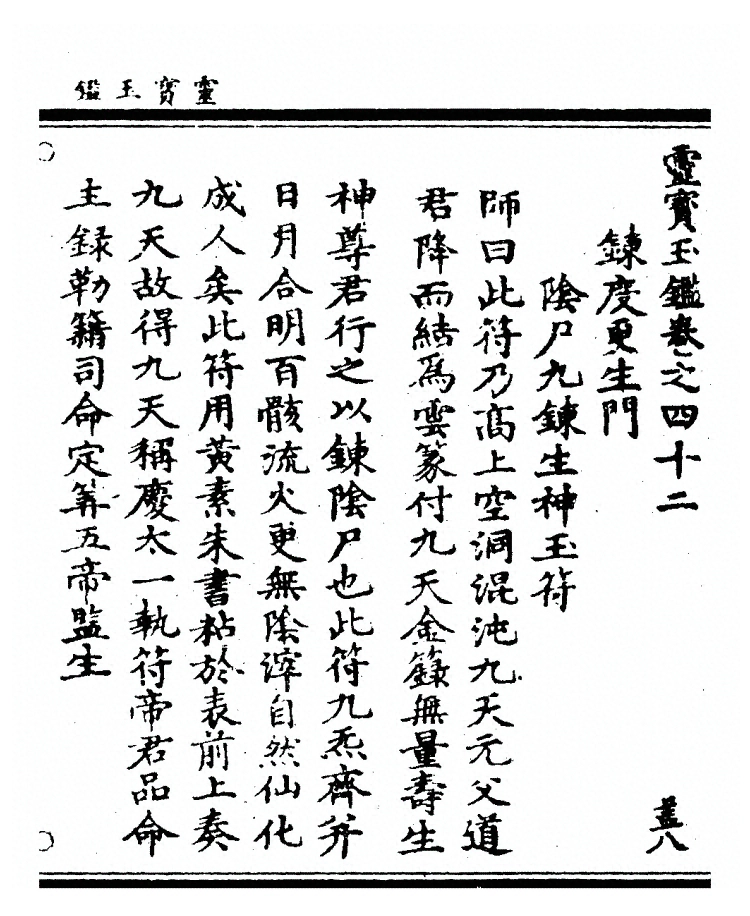 靈寶玉鑑
靈寶玉鑑卷之四十二
蓋八
鍊度更生門
陰尸九鍊生神玉符
師曰此符乃高上空洞混沌九天元父道
君降而結爲雲篆付九天金籙無量壽生
神尊君行之以鍊陰尸也此符九炁齊并
日月合明百骸流火更無陰滓自然仙化
成人矣此符用黃素朱書粘於表前上奏
九天故得九天稱慶太一執符帝君品命
主録勒籍司命定筭五帝監生